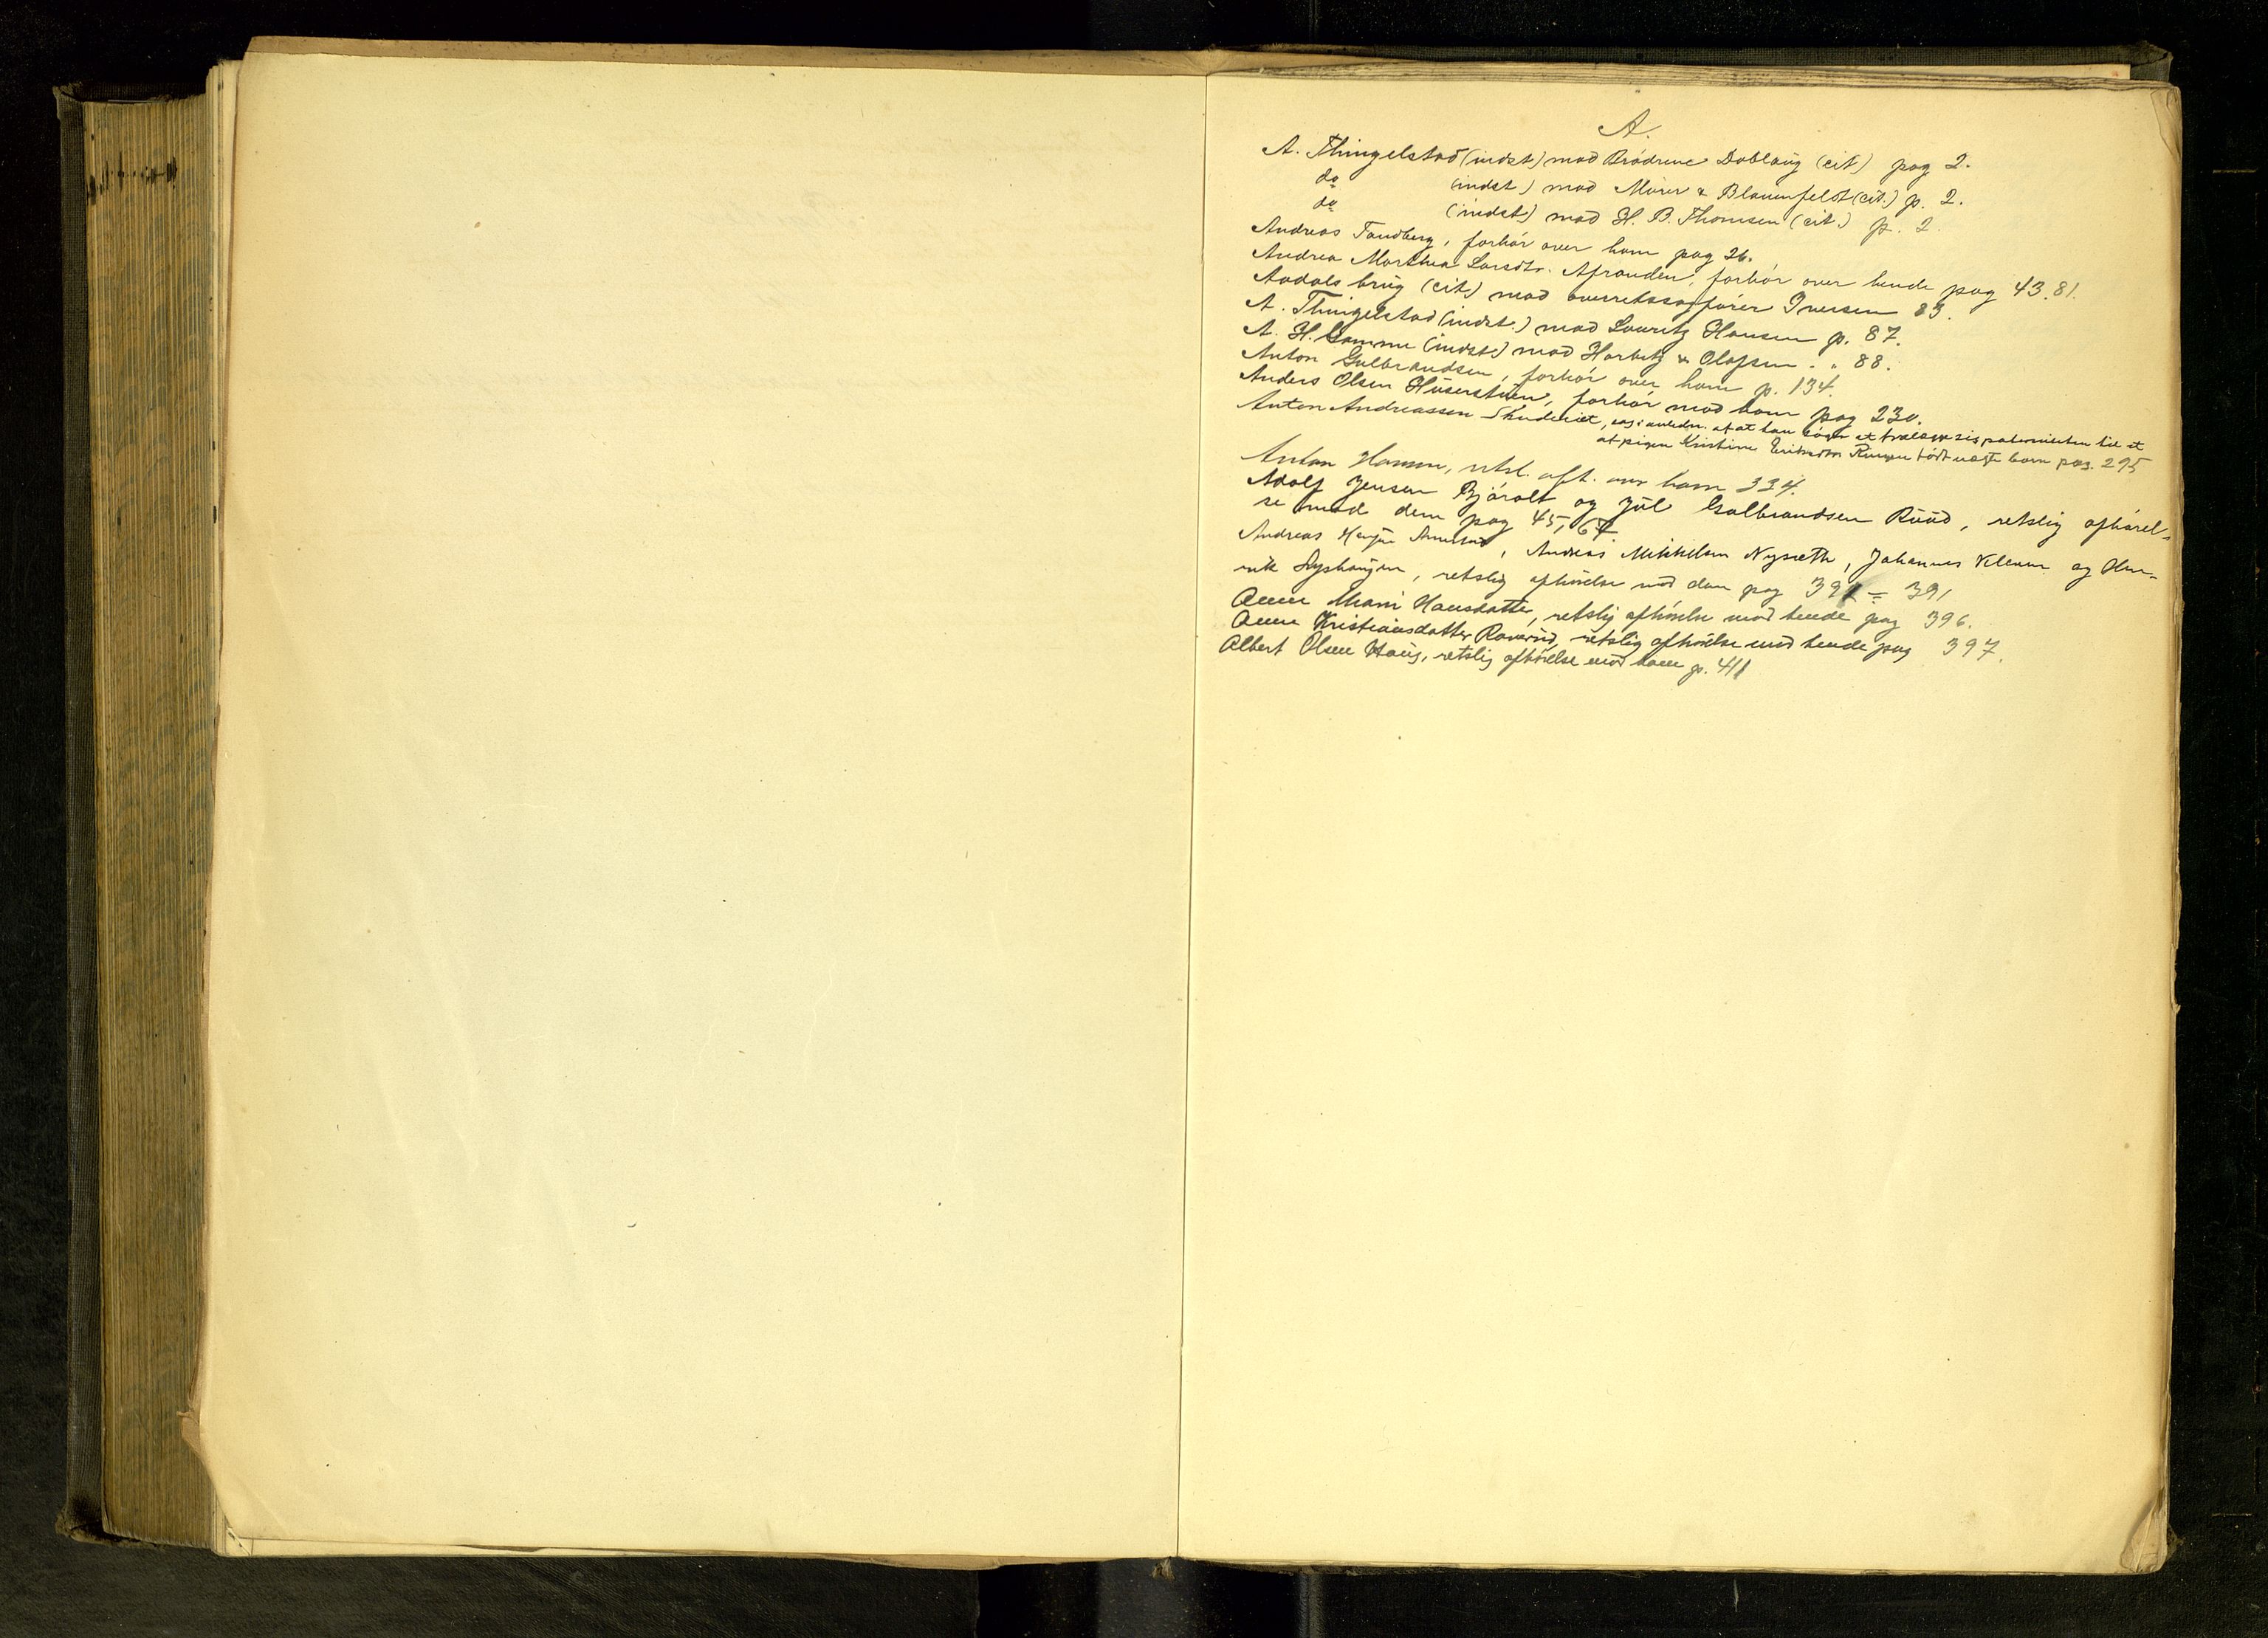 A.
A. Thingelstad (indst) mod Brødrene Doblaug (cit) pag 2.
do (indst) mod Meier & Blauenfeldt (cit.) p. 2.
do (indst) mod H. B. Thomsen (cit.) p. 2.
Andreas Tandberg, forhør over ham pag 26.
Andrea Marthea Larsdtr. forhør over hende pag 43. 81.
Aadals brug (cit) mod overretssagfører Iversen 83.
A. Thingelstad (indst.) mod Lauritz Hansen p. 87.
A. H. (indst) mod Harbitz & Olafsen . " 88.
Anton Gulbrandsen, forhør over ham p. 134.
Anders Olsen Huserstuen, forhør mod ham pag 230.
Anton Andreassen sag i anledn. af at han søger at fralægge sig paterniteten til et
af pigen Kristine født uægte barn pag. 295
Anton Hansen, retsl. afh. over ham 334.
Adolf Jensen Bjørolt og Jul Gulbrandsen Ruud, retslig afhørel-
se mod dem pag 45, 64
Andreas , Andreas Mikkelsen Nysæth, Johannes Klevmo og Hen-
rik retslig afhørelse mod dem pag 391 = 391
Anne Marie Hansdatter, retslig afhørelse mod hende pag 396.
Anne Kristiansdatter Ranerud, retslig afhørelse mod hende pag 397.
Albert Olsen Haug, retslig afhørelse mod ham p. 411